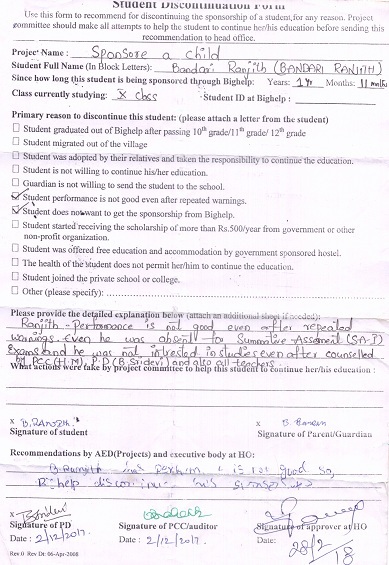 Student Discontinuation Form
Use this form to recommend for discontinuing the sponsorship of a student, for any reason. Project
committee should make all attempts to help the student to continue her/his education before sending this
recommendation to head office.
Project Name : Sponsore a child
Student Full Name (In Block Letters): Bandari Ranjith (BANDARI RANJITH)
Since how long this student is being sponsored through Bighelp: Years: 1 yr Months: 11 months
Class currently studying: X class Student ID at Bighelp :
Primary reason to discontinue this student: (please attach a letter from the student)
Student graduated out of Bighelp after passing 10th grade/11th grade/ 12th grade
Student migrated out of the village
Student was adopted by their relatives and taken the responsibility to continue the education.
Student is not willing to continue his/her education.
Guardian is not willing to send the student to the school.
Student performance is not good even after repeated warnings.
Student does not want to get the sponsorship from Bighelp.
Student started receiving the scholarship of more than Rs.500/year from government or other
non-profit organization.
Student was offered free education and accommodation by government sponsored hostel.
The health of the student does not permit her/him to continue the education.
Student joined the private school or college.
Other (please specify):
Please provide the detailed explanation below (attach an additional sheet if needed):
Ranjith - Performance is not good even after repeated
warnings. Even he was absent to Summative Assesment (SA-I)
Exams and he was not intrested in studies even after counselled
by PCC (H.M), P.D (B. Sridevi) and also all teachers.
What actions were take by project committee to help this student to continue her/his education :
x B. RANJITH x B.
Signature of student Signature of Parent/Guardian
Recommendations by AED(Projects) and executive body at HO:
B. Ranjith his is not good so,
Bighelp his
x x
Signature of PD Signature of PCC/auditor Signature of approver at HO
Date : 2/12/2017. Date : 2/12/2017. Date: 28/2/18
Rev.0 Rev Dt: 06-Apr-2008